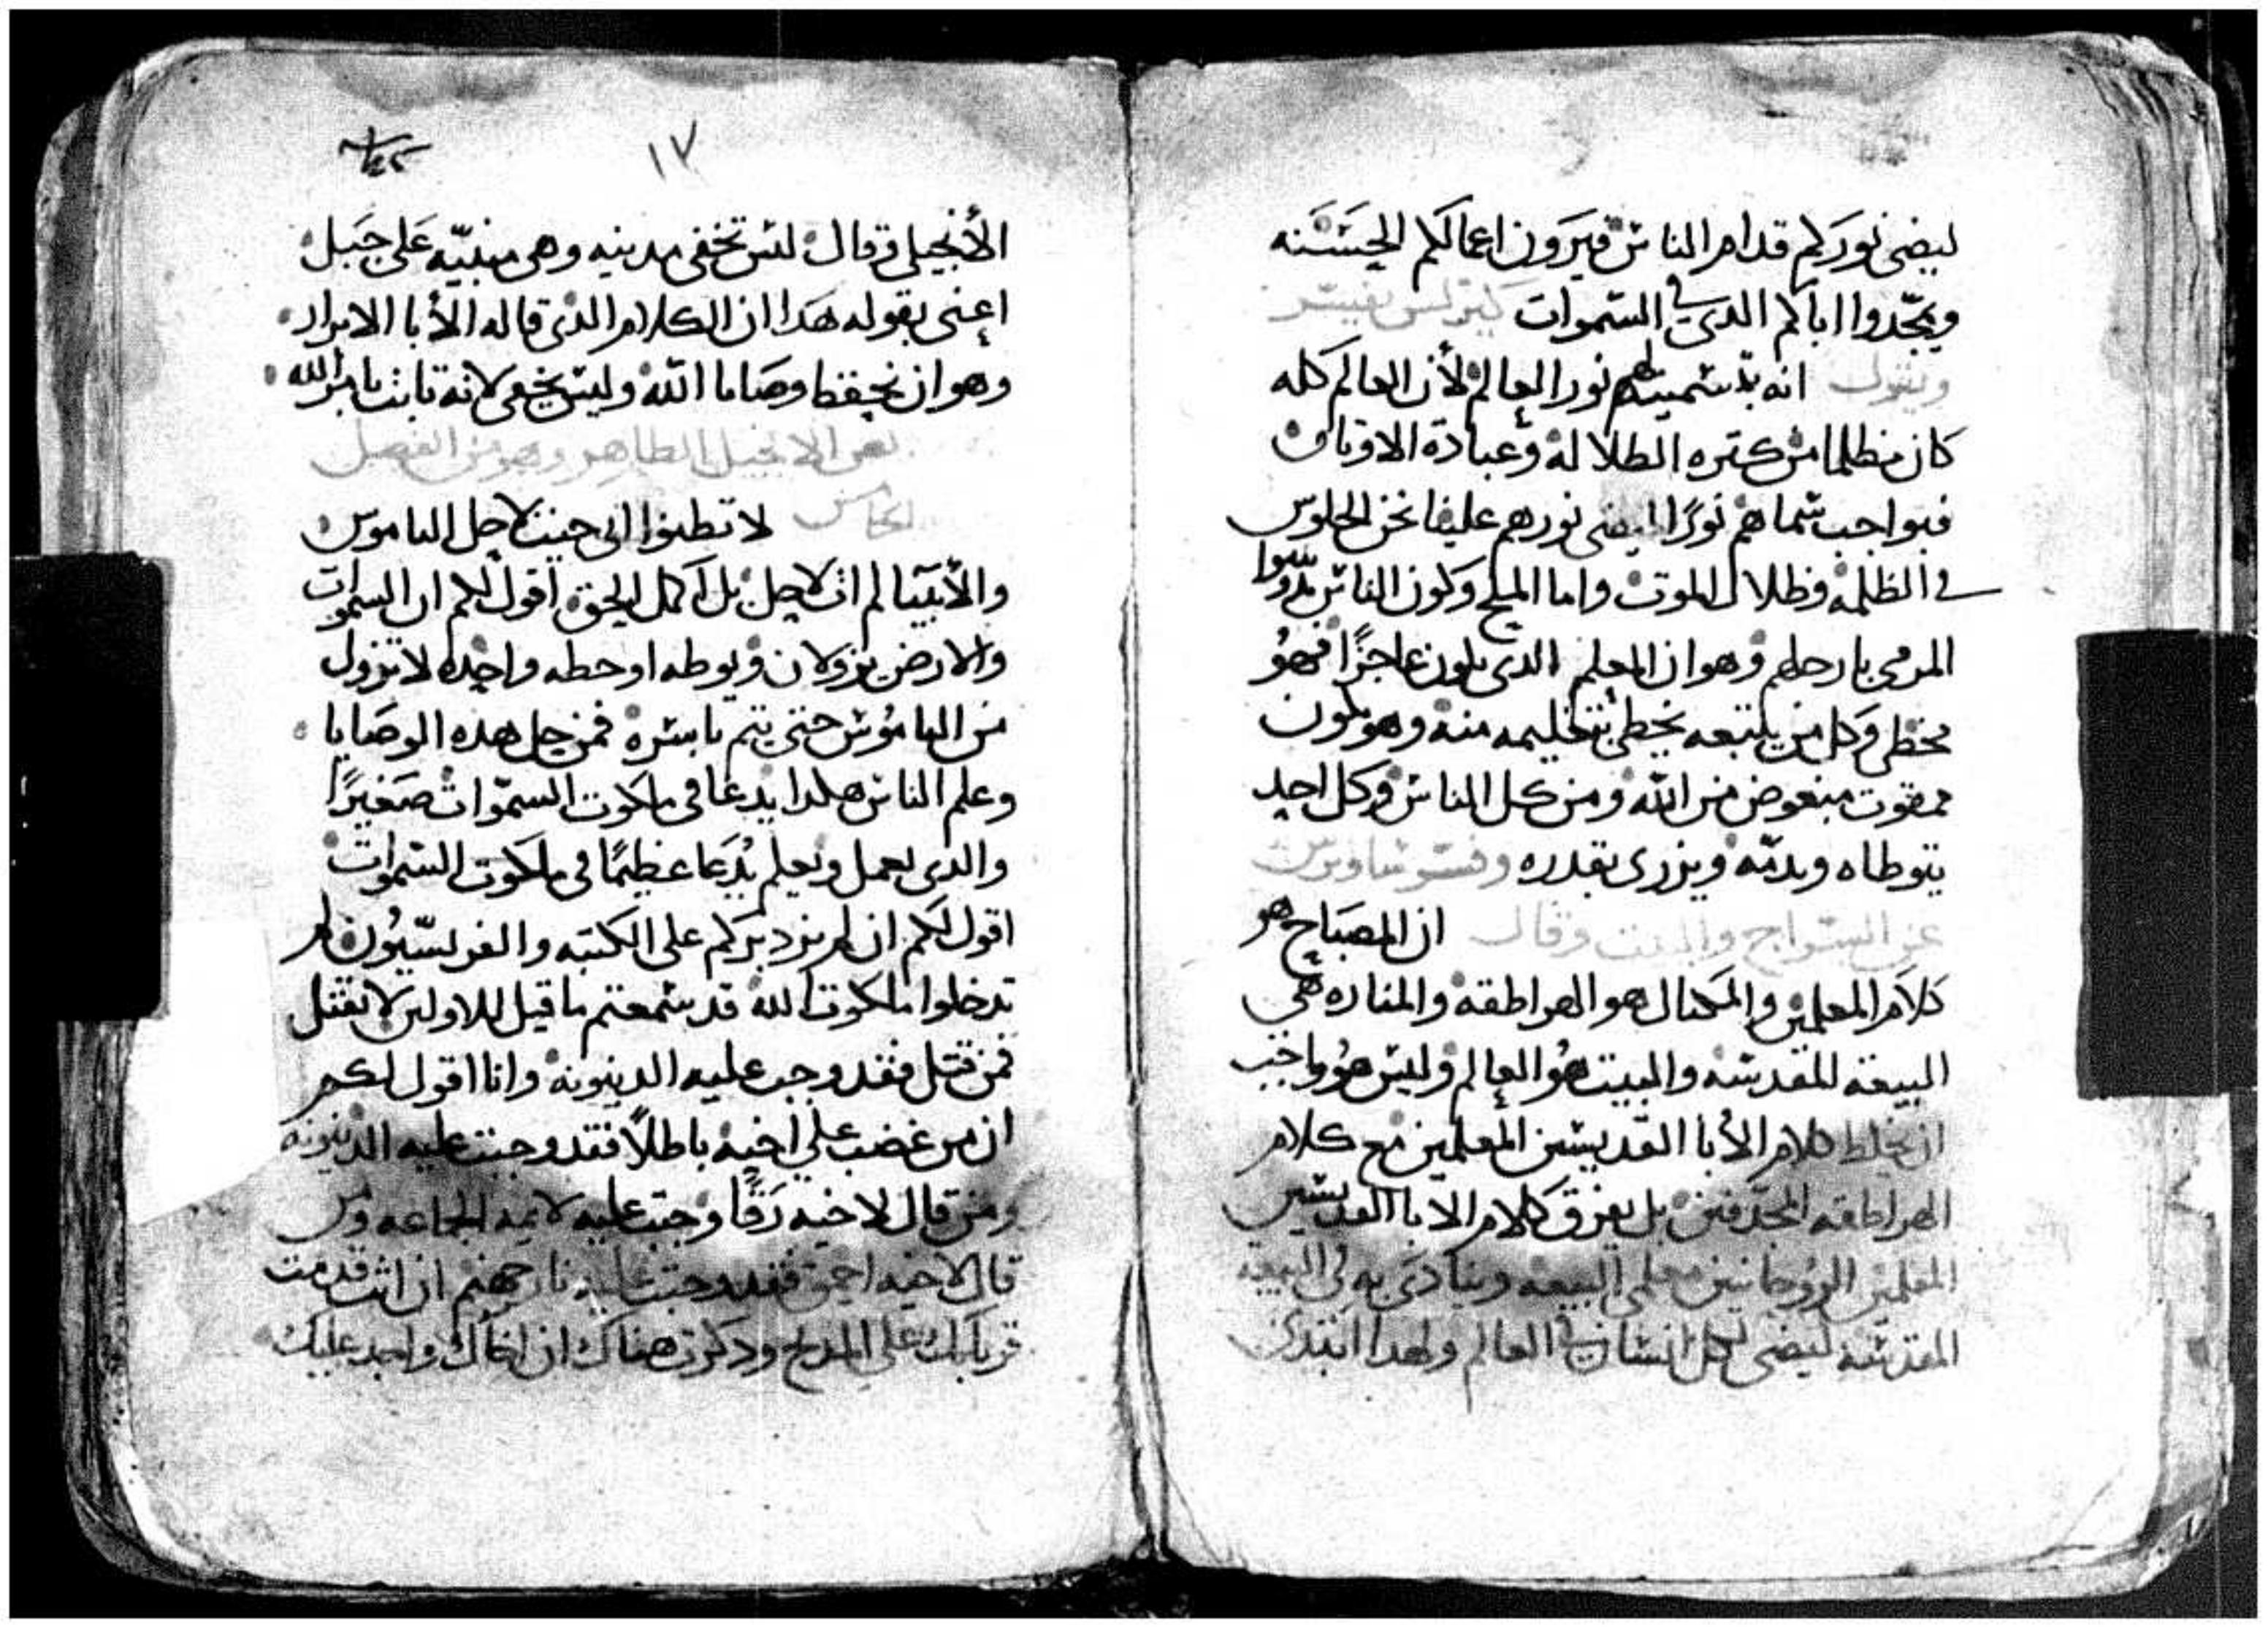 ليضى نوركم قدام الناس فيرون اعمالكم الحسنه
ويمجّدوا اباكم الدى فى السموات كيرلس يفيسر
ويقول انه بدّ سميتهم نور العالم لأن العالم كله
كان مظلما من كتره الطلاله وعبادة الاوتان
فبواجب سماهم نورًا ليضى نورهم علينا نحن الجلوس
فى الظلمه وظلال الموت واما الملح وكون الناس يدوسوا
المرمى بارجلهم وهو ان المعلم الدى يكون عاجزًا فهو
مخطى وكل من يتبعه يخطى بتعليمه منه وهو يكون
ممقوت مبغوض من الله ومن كل الناس وكل احد
يتوطاه ويدمّه ويزرى بقدره وفسر ساويرس
عن السراج والبيت وقال ان المصباح هو
كلام المعلمين والمكيال هو الهراطقه والمناره هى
البيعه المقدسه والبيت هو العالم وليس هو واجب
ان يخلط كلام الأبا القديسين المعلمين مع كلام
الهراطقه المجدفين بل يفرق كلام الابا القديسين
المعلمين الروحانيين معلمى البيعه وينادى به فى البيعه
المقدسه ليضى لكل انسان فى العالم ولهدا ابتدى
١٢
الأنجيلى وقال ليس تخفى مدينه وهى مبنيّه على جبل
اعنى بقوله هكدا ان الكلام الدى قاله الأبا الابرار
وهو ان نحفظ وصايا الله وليس يخفى لانه تابت بامر الله
نص الانجيل الطاهر وهو من الفصل
الخامس لا تظنوا انى جيت لاحل الناموس
والأنبيا لم ات لاحل بل اكمل الحق اقول لكم ان السموات
والارض يزولان ويوطه او خطه واحده لا تزول
من الناموس حتى يتم باسره فمن حل هده الوصايا
وعلم الناس هكدا يدعا فى ملكوت السموات صغيرًا
والدى يعمل ويعلم يُدعا عظيمًا فى ملكوت السموات
اقول لكم ان لم يزد بركم على الكتبه والفريسيون لم
تدخلوا ملكوت الله قد سمعتم ما قيل للاولين لا تقتل
فمن قتل فقد وجب عليه الدينونه وانا اقول لكم
ان من غضب على اخيه باطلاً فقد وجبت عليه الدينونه
ومن قال لاخيه رقا وجبت عليه لايمه الجماعه ومن
قال لاخيه احمق فقد وجبت عليه نار جهنم ان انت قدمت
قربانك على المدبح ودكرت هناك ان اخاك واجد عليك